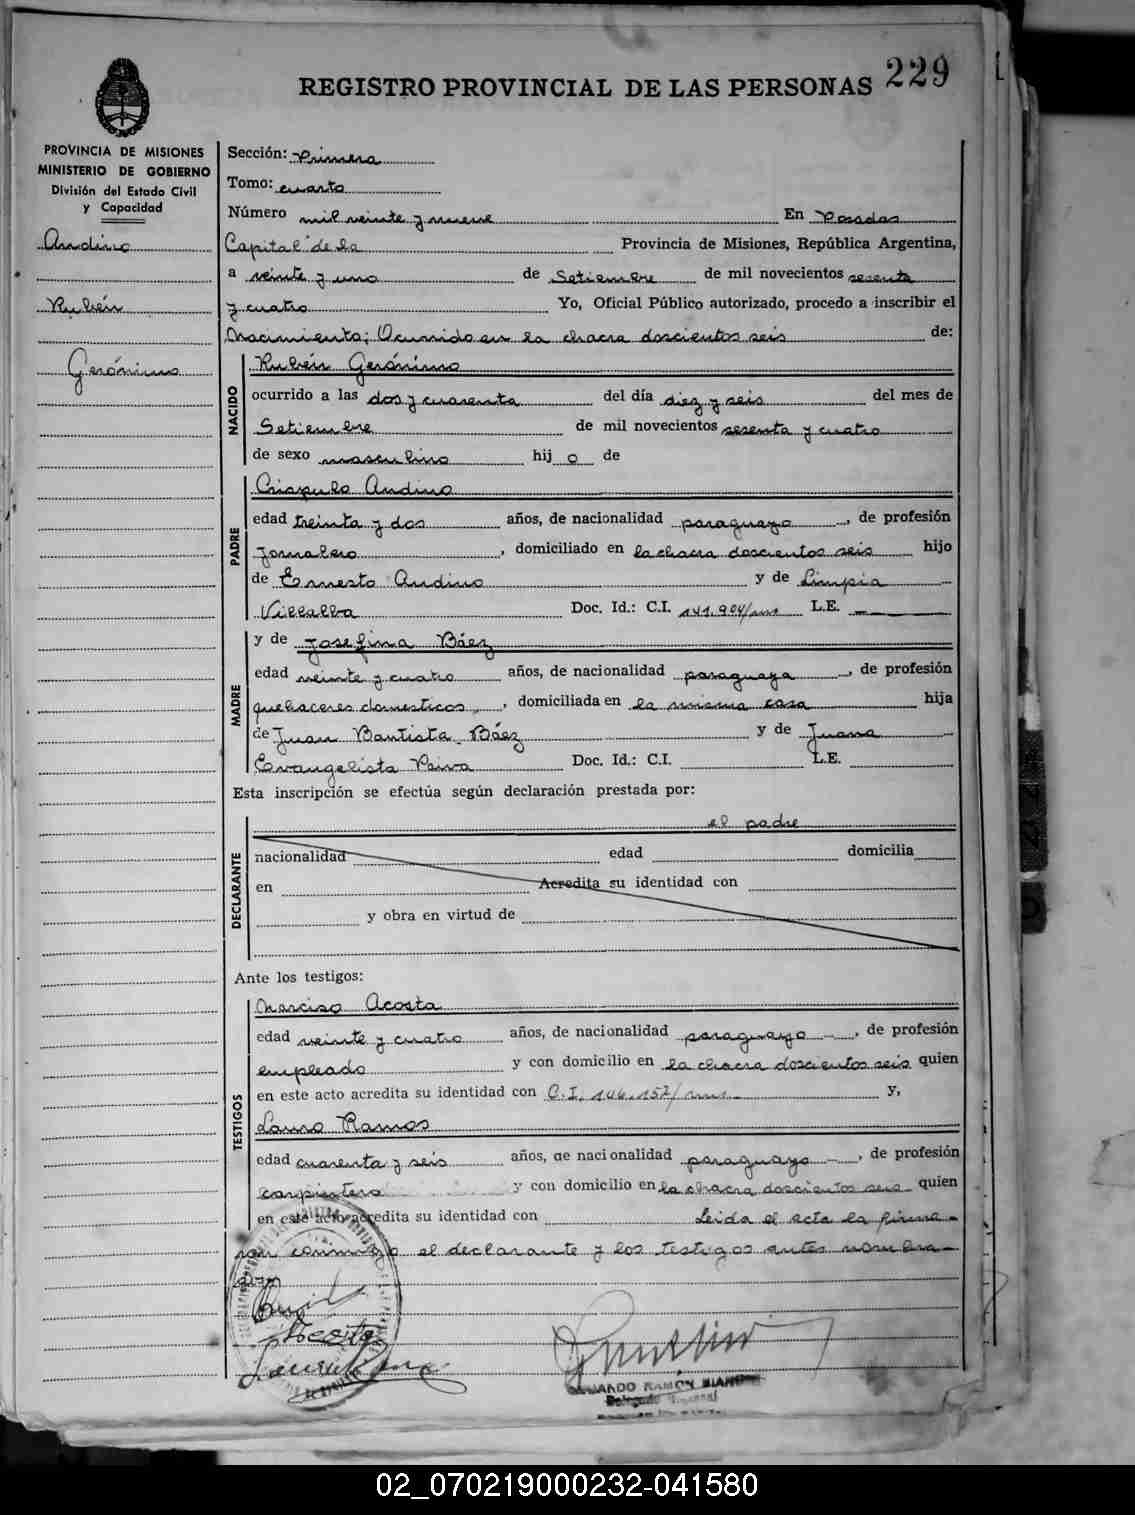 REGISTRO PROVINCIAL DE LAS PERSONAS 229
PROVINCIA DE MISIONES
MINISTERIO DE GOBIERNO
División del Estado Civil
y Capacidad
Andino
Rubén
Gerónimo
Sección: Primera
Tomo: cuarto
Número mil veinte y nueve En Posadas
Capital de la Provincia de Misiones, República Argentina,
a veinte y uno de Setiembre de mil novecientos sesenta
y cuatro Yo, Oficial Público autorizado, procedo a inscribir el
Nacimiento; Ocurrido en la chacra doscientos seis de:
NACIDO
Rubén Gerónimo
ocurrido a las dos y cuarenta del día diez y seis del mes de
Setiembre de mil novecientos sesenta y cuatro
de sexo masculino hij o de
PADRE
Crispulo Andino
edad treinta y dos años, de nacionalidad paraguayo, de profesión
Jornalero, domiciliado en la chacra doscientos seis hijo
de Ernesto Andino y de Limpia
Villalba Doc. Id.: C.I. 141.904/mns L.E. —
MADRE
y de Josefina Báez
edad veinte y cuatro años, de nacionalidad paraguaya, de profesión
quehaceres domesticos, domiciliada en la misma casa hija
de Juan Bautista Báez y de Juana
Evangelista Paiva Doc. Id.: C.I. L.E.
Esta inscripción se efectúa según declaración prestada por:
el padre
DECLARANTE
nacionalidad edad domicilia
en Acredita su identidad con
y obra en virtud de
Ante los testigos:
TESTIGOS
Narciso Acosta
edad veinte y cuatro años, de nacionalidad paraguayo -, de profesión
empleado y con domicilio en la chacra doscientos seis quien
en este acto acredita su identidad con C.I. 146.157/mns- y,
Lauro Ramos
edad cuarenta y seis años, de nacionalidad paraguayo -, de profesión
carpintero y con domicilio en la chacra doscientos seis quien
en este acto acredita su identidad con Leida el acta la firma-
ron conmigo el declarante y los testigos antes nombra-
dos
Acosta
EDUARDO RAMÓN
Delegado
02_070219000232-041580